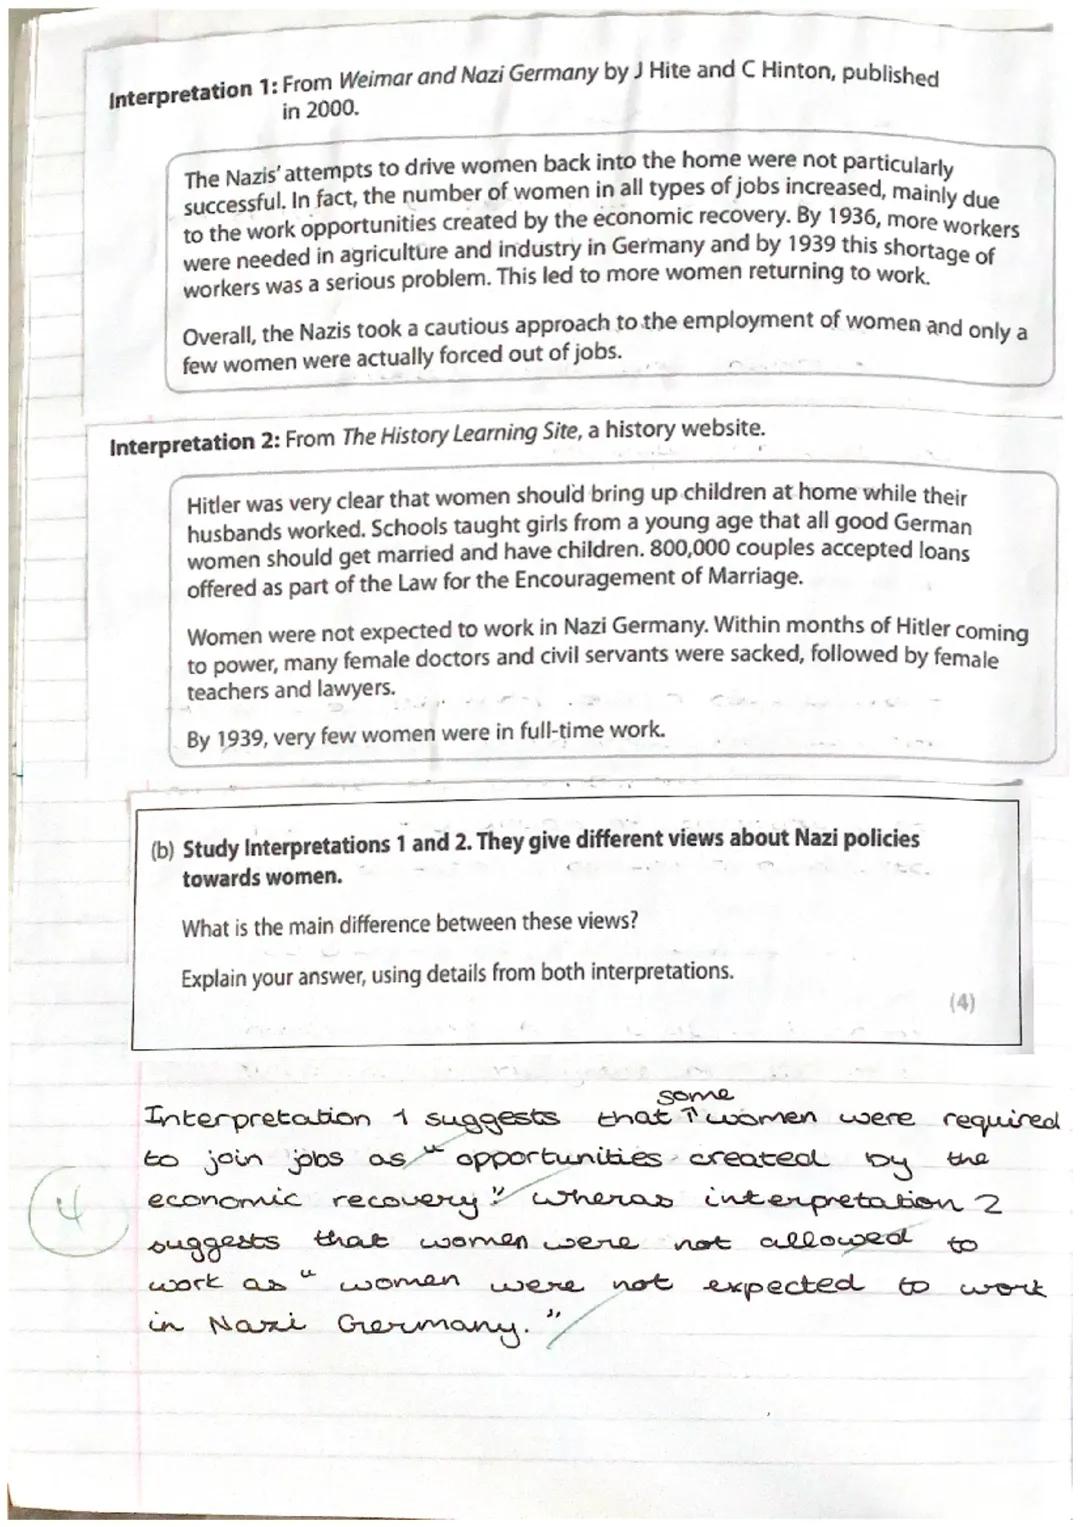 Interpretation 1: From Weimar and Nazi Germany by J Hite and C Hinton, published
in 2000.
The Nazis' attempts to drive women back into the home were not particularly
successful. In fact, the number of women in all types of jobs increased, mainly due
to the work opportunities created by the economic recovery. By 1936, more workers
were needed in agriculture and industry in Germany and by 1939 this shortage of
workers was a serious problem. This led to more women returning to work.
Overall, the Nazis took a cautious approach to the employment of women and only a
few women were actually forced out of jobs.
Interpretation 2: From The History Learning Site, a history website.
Hitler was very clear that women should bring up children at home while their
husbands worked. Schools taught girls from a young age that all good German
women should get married and have children. 800,000 couples accepted loans
offered as part of the Law for the Encouragement of Marriage.
Women were not expected to work in Nazi Germany. Within months of Hitler coming
to power, many female doctors and civil servants were sacked, followed by female
teachers and lawyers.
By 1939, very few women were in full-time work.
(b) Study Interpretations 1 and 2. They give different views about Nazi policies
towards women.
What is the main difference between these views?
Explain your answer, using details from both interpretations.
(4)
some
Interpretation 1 suggests that women were required
to join jobs as "opportunities created by the
economic recovery" wheras interpretation 2
4
suggests that women were not allowed to
work as "women were not expected to work
in Nazi Germany."